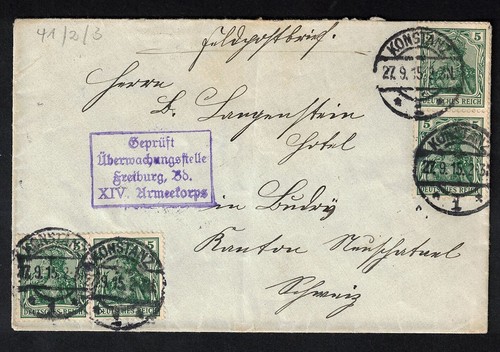 41/2/3
Feldpostbrief.
Herrn
B. Langenstein
Hotel
in Budry
Kanton Neuschatael
Schweiz
Geprüft
Überwachungsstelle
Freiburg, Bd.
XIV. Armeekorps
KONSTANZ
27.9.15
1
5
DEUTSCHES REICH
KONSTANZ
27.9.15
1
5
DEUTSCHES REICH
KONSTANZ
27.9.15
5
DEUTSCHES REICH
KONSTANZ
27.9.15
1
5
DEUTSCHES REICH